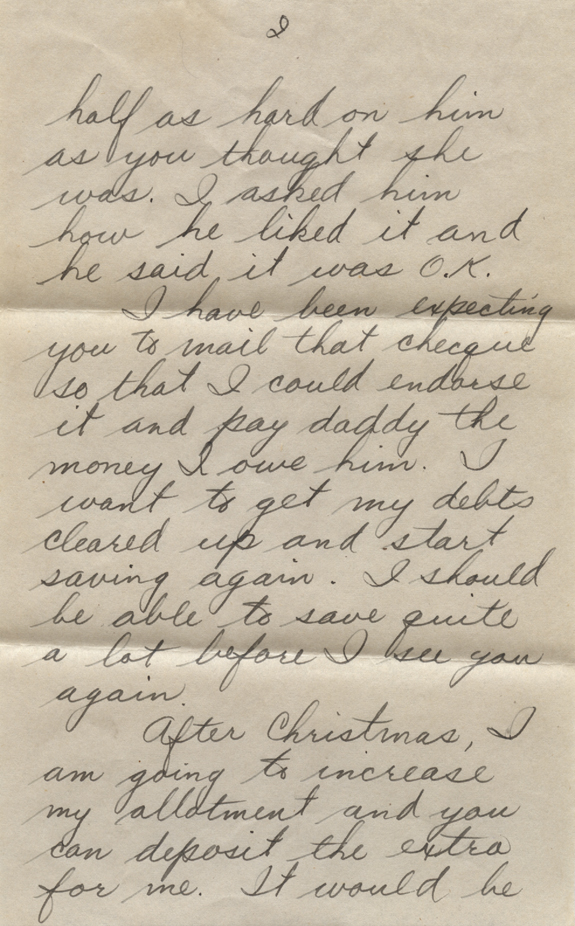 2
half as hard on him
as you thought she
was. I asked him
how he liked it and
he said it was O.K.
I have been expecting
you to mail that checque
so that I could endorse
it and pay daddy the
money I owe him. I
want to get my debts
cleared up and start
saving again. I should
be able to save quite
a lot before I see you
again.
After Christmas, I
am going to increase
my allotment and you
can deposit the extra
for me. It would be